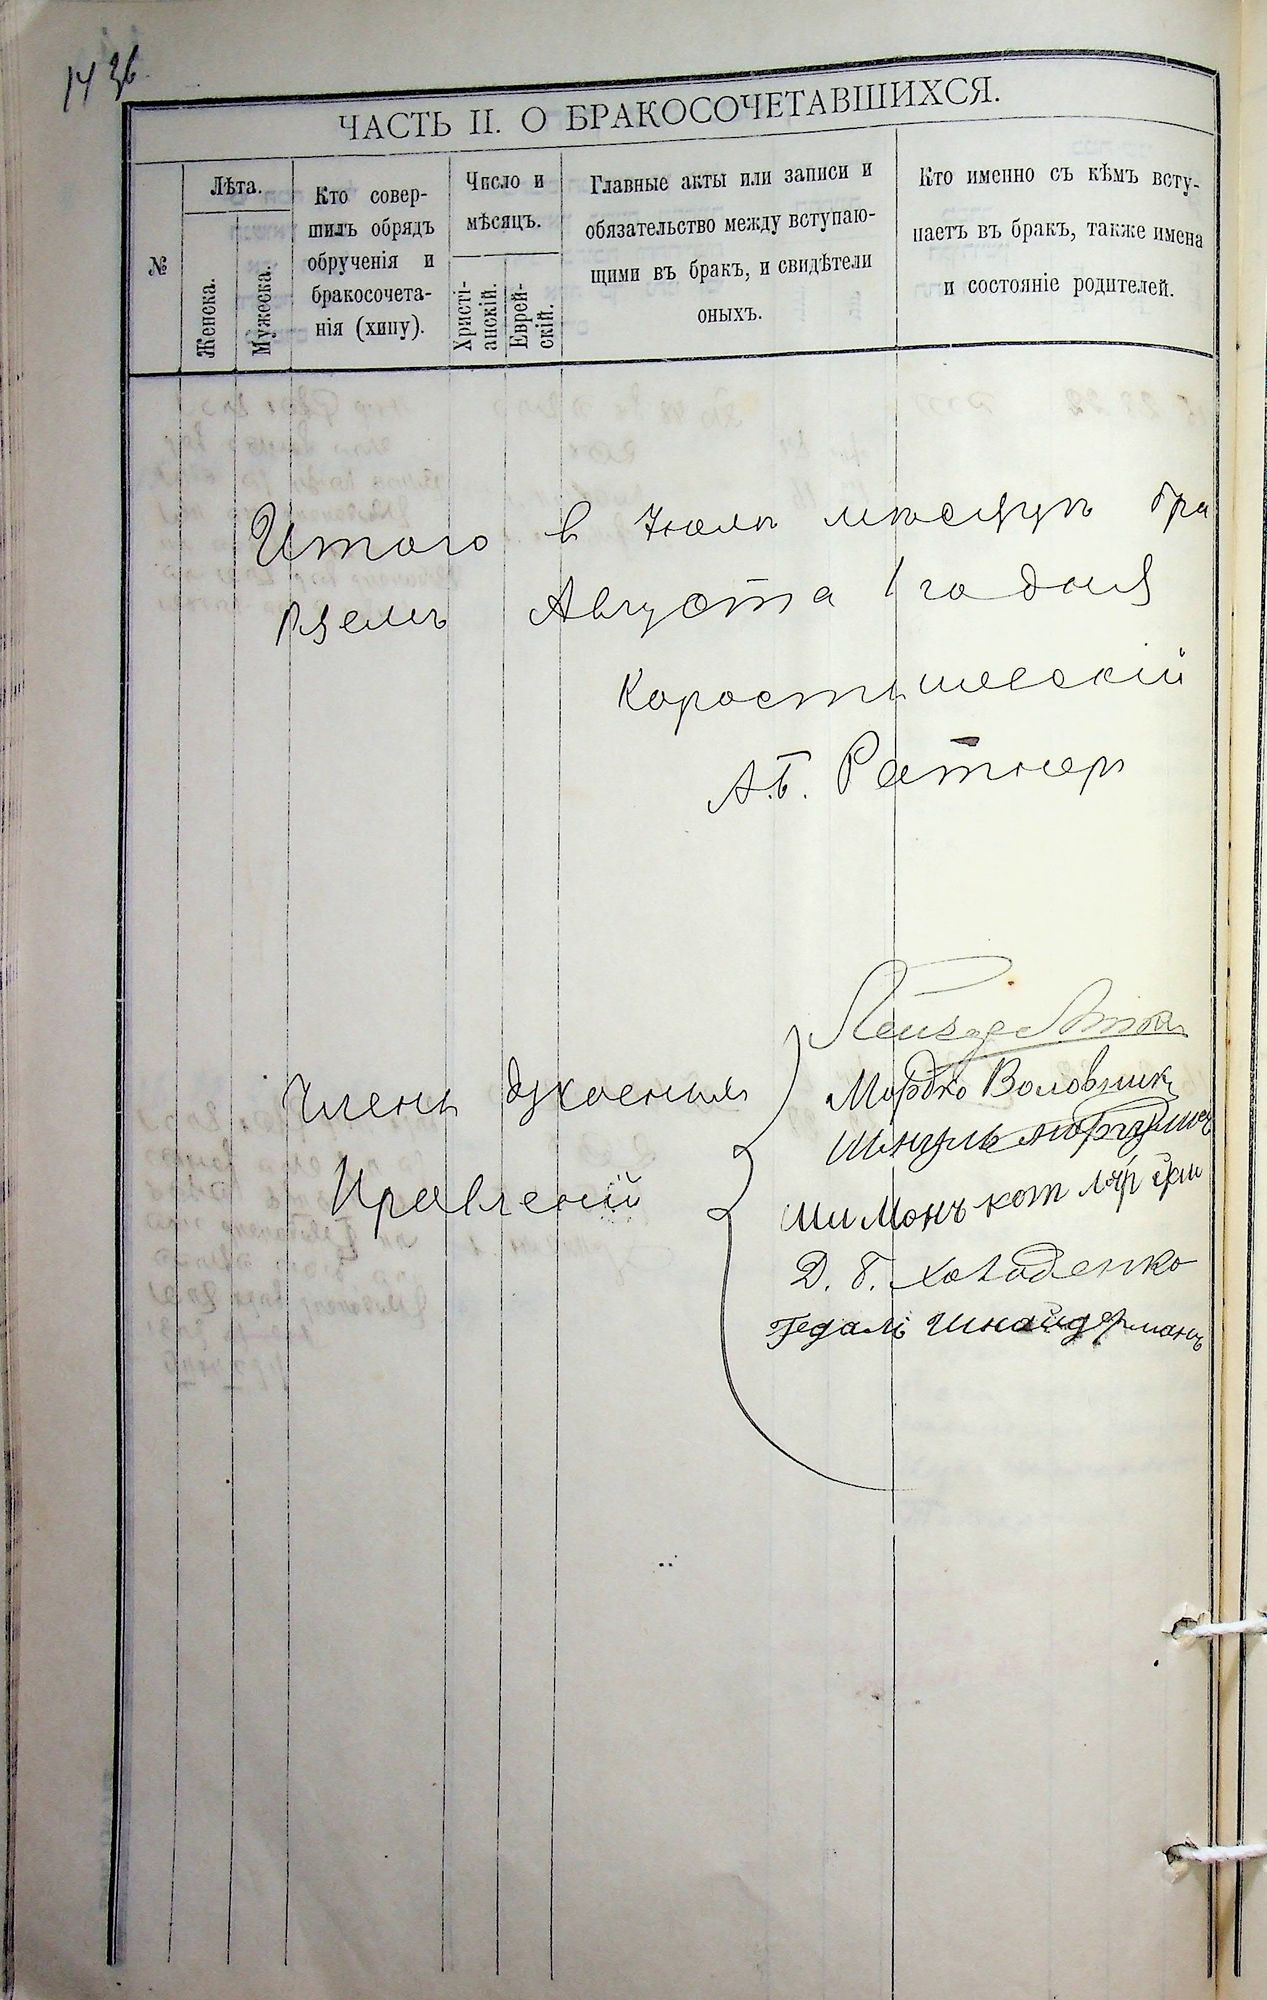 14 36
ЧАСТЬ II. О БРАКОСОЧЕТАВШИХСЯ.
№
Лѣта.
Женска.
Мужеска.
Кто совер-
шилъ обрядъ
обрученія и
бракосочета-
нія (хипу).
Число и
мѣсяцъ.
Христі-
анскій.
Еврей-
скій.
Главные акты или записи и
обязательство между вступаю-
щими въ бракъ, и свидѣтели
оныхъ.
Кто именно съ кѣмъ всту-
паетъ въ бракъ, также имена
и состояніе родителей.
Итого в Июлѣ мѣсяцѣ
Августа 1 го дня
Коростышевскій
А.Б. Ратнеръ
Члены
Правленій
Мордко Воловник
Шимонъ кот
Д. Б. Ходаденко
Гедалъ Шнайдерманъ